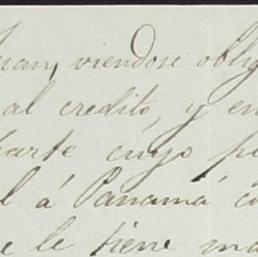 Juan, viendose oblig
al credito, y en
parte cuyo pe
l á Panamá co
e le tiene ma